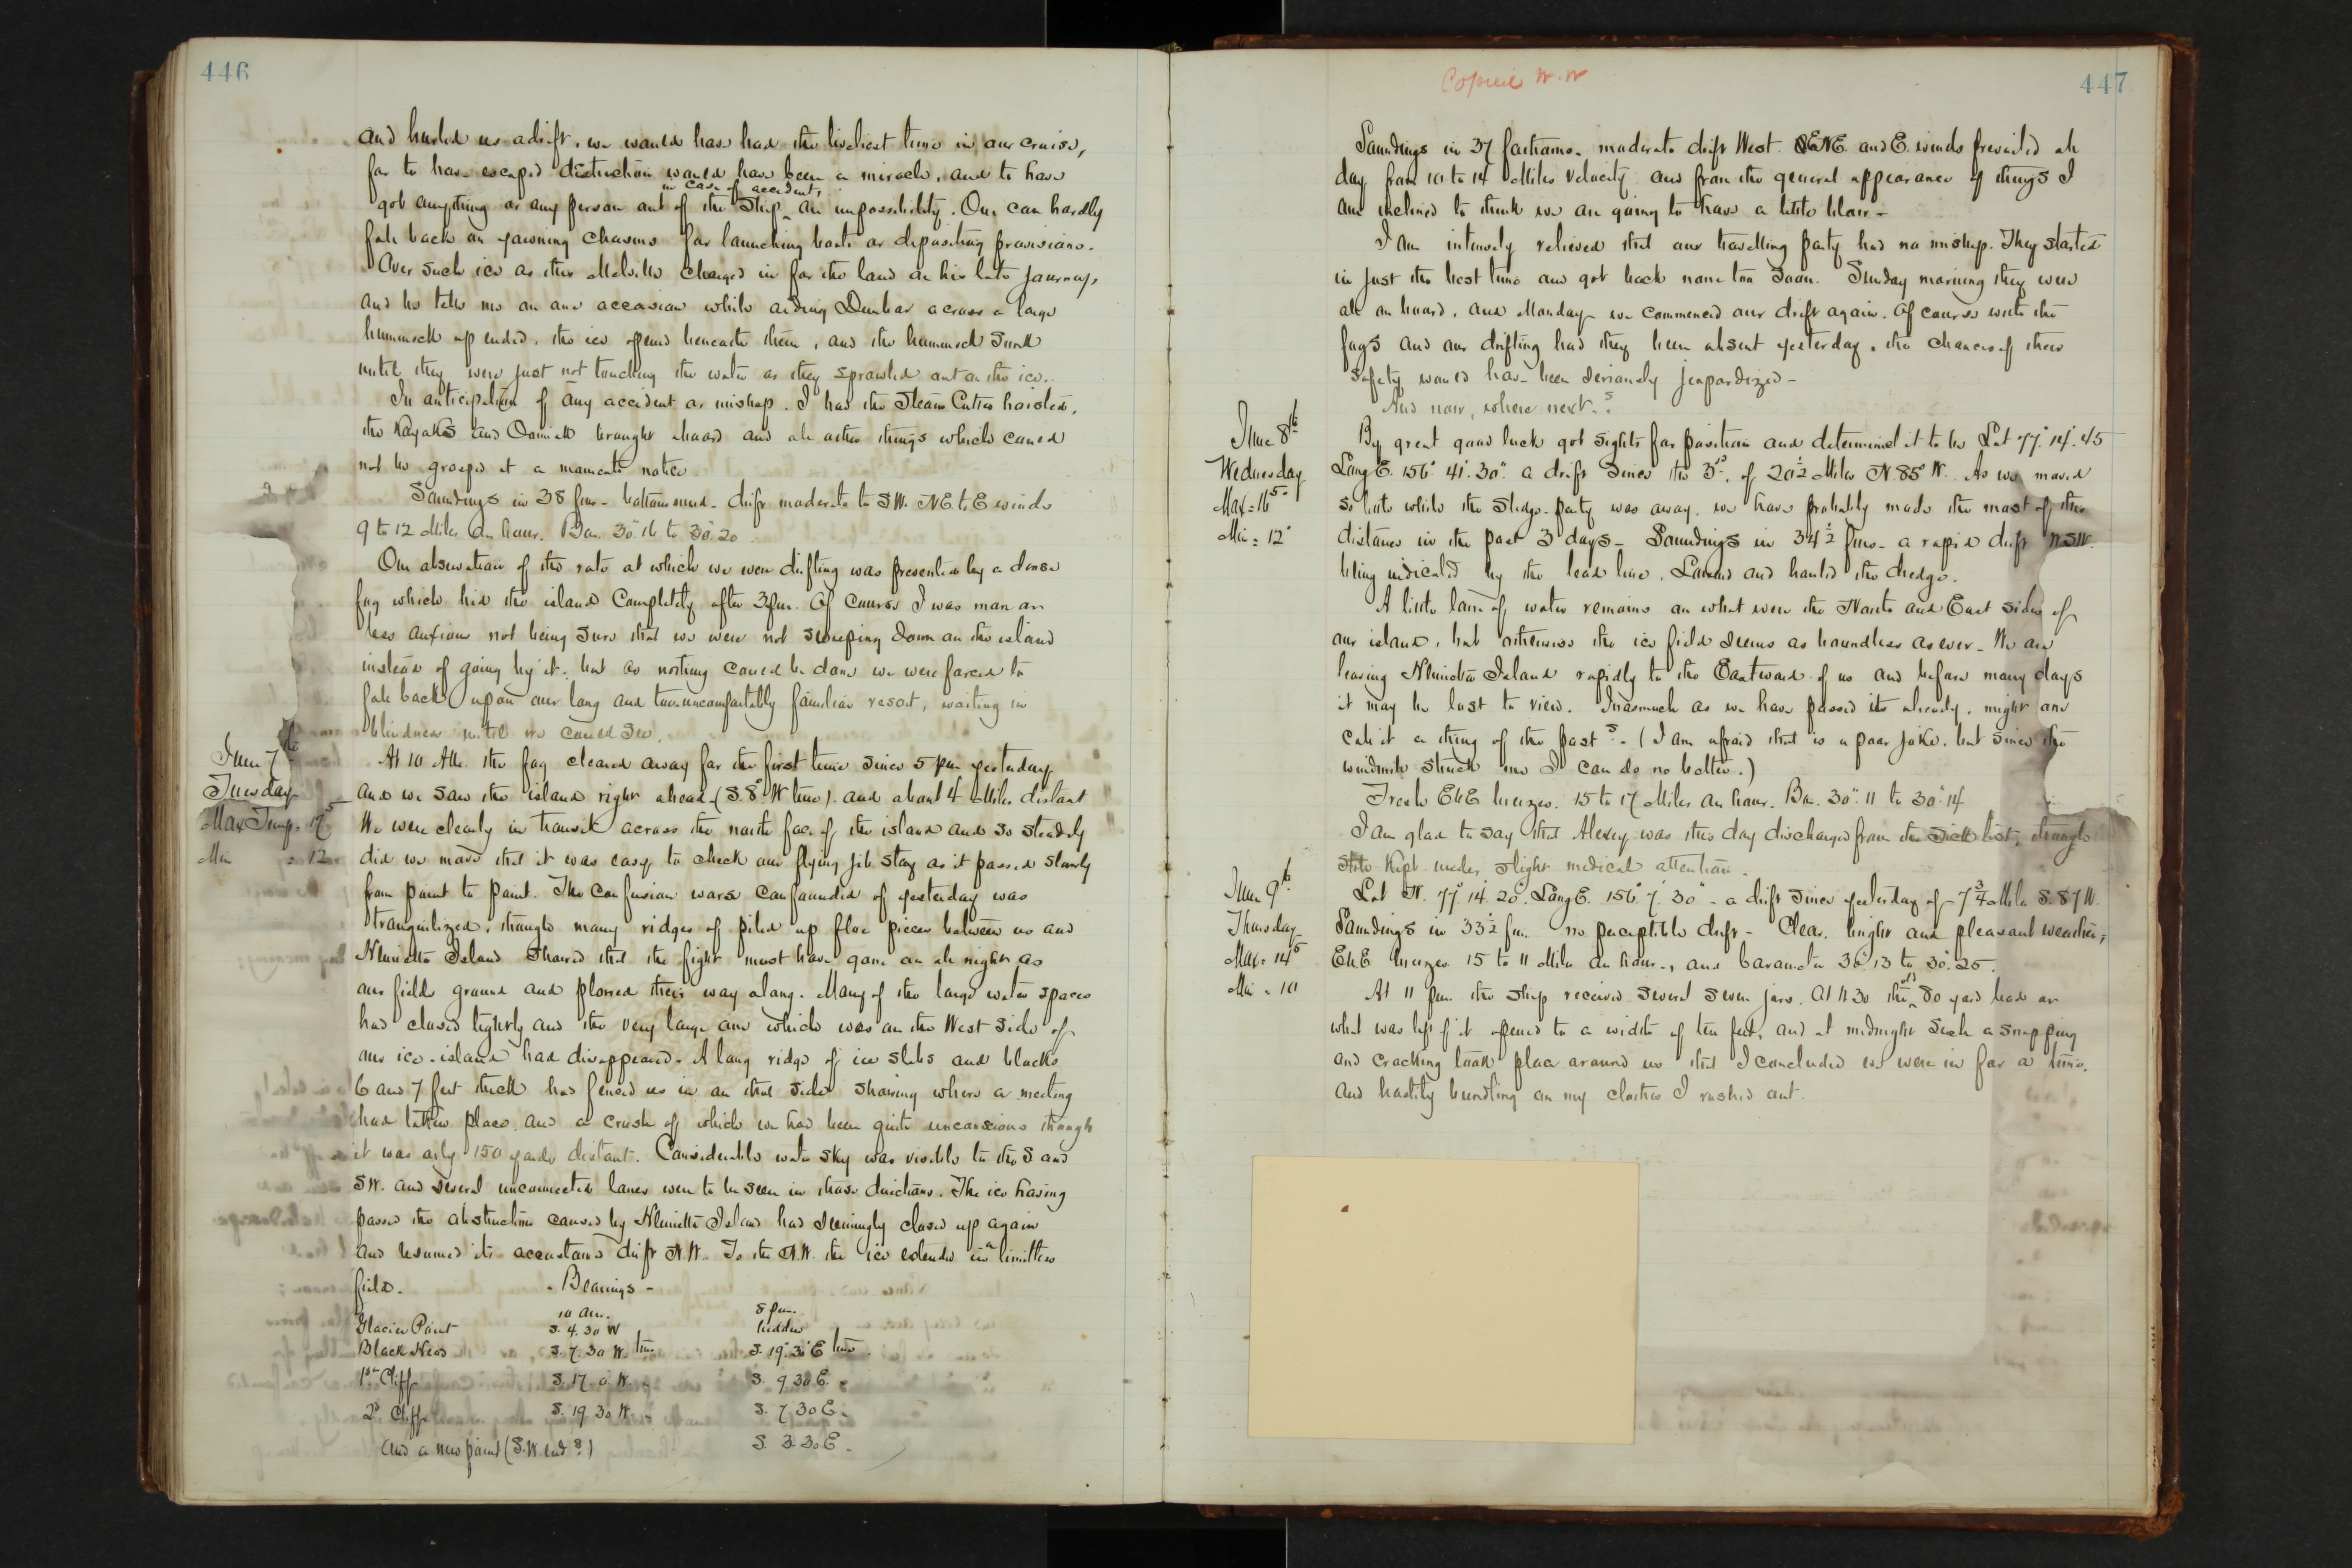 446
and hurled us adrift, we would have had the liveliest time in our cruise,
for to have escaped distruction would have been a miracle, and to have
in case of accident,
got anything or any person out of the Ship an impossibility. One can hardly
fall back on yawning chasms for launching boats or depositing provisions.
Over such ice as this Melville charged in for the land on his late journey,
and he tells me on one occasion while aiding Dunbar across a large
hummock up ended, the ice opened beneath them, and the hummock sunk
until they were just not touching the water as they sprawled out on the ice.
In anticipation of any accident or mishap. I had the Steam Cutter hoisted,
the Kayaks and Oomiak brought aboard and all other things which could
not be grasped at a moments notice.
Soundings in 38 fms - bottom mud - drift moderate to SW. NE to E winds
9 to 12 Miles an hour. Bar. 30".16 to 30".20
Our observation of the rate at which we were drifting was prevented by a dense
fog which hid the island completely after 3 pm. Of course I was more or
less anxious not being sure that we were not sweeping down on the island
instead of going by it, but as nothing could be done we were forced to
fall back upon our long and too uncomfortably familiar resort, waiting in
blindness until we could see.
June 7th
Tuesday
Max Temp. 17°.5
Min = 12
At 10 AM. the fog cleared away for the first time since 5 pm yesterday
and we saw the island right ahead (S. 8° W true). and about 4 Miles distant
We were clearly in transit across the north face of the island and so steadily
did we move that it was easy to check our flying jib stay as it passed slowly
from point to point. The confusion worse confounded of yesterday was
tranquilized, though many ridges of piled up floe pieces between us and
Henrietta Island showed that the fight must have gone on all night as
our field ground and plowed their way along. Many of the large water spaces
had closed tightly and the very large one which was on the West side of
our ice-island had disappeared. A long ridge of ice slabs and blocks
6 and 7 feet thick had fenced us in on that side showing where a meeting
had taken place and a crush of which we had been quite unconscious though
it was only 150 yards distant. Considerable water sky was visible to the S and
SW. and several unconnected lanes were to be seen in those directions. The ice having
passed the obstruction caused by Henrietta Island had seemingly closed up again
and resumed its accustomed drift N.W. To the N.W. the ice extends in a limitless
field.
- Bearings -
10 am.	8 pm.
Glacier Point	S. 4. 30 W	hidden
Black Head	S. 7. 30 W. true	S. 19° 30' E true.
1st Cliff	S. 17. 0 W. "	S. 9 30 E. "
2d Cliff	S. 19 30 W. "	S. 7 30 E. "
And a new point (S.W. end?)	S. 3 30 E. "
Copied W. W
447
Soundings in 37 fathoms. moderate drift West. ENE. and E. winds prevailed all
day from 10 to 14 Miles velocity and from the general appearance of things I
am inclined to think we are going to have a little blow -
I am intensely relieved that our travelling party had no mishap. They started
in just the best time and got back none too soon. Sunday morning they were
all on board, and Monday we commenced our drift again. Of course with the
fogs and our drifting had they been absent yesterday, the chances of their
safety would have been seriously jeopardized -
And now, where next?
June 8th
Wednesday
Max = 16°.5
Min = 12°
By great good luck got sights for position and determined it to be Lat 77°. 14'. 45
Long E. 156°. 41'. 30". a drift since the 3rd, of 20½ Miles N. 85° W. As we moved
so little while the sledge-party was away, we have probably made the most of this
distance in the past 3 days - Soundings in 34½ fms - a rapid drift WSW.
being indicated by the lead line. Lowered and hauled the dredge.
A little lane of water remains on what were the North and East sides of
our island, but otherwise the ice field seems as boundless as ever - We are
leaving Henrietta Island rapidly to the Eastward of us and before many days
it may be lost to view. Inasmuch as we have passed it already, might one
call it a thing of the past? - (I am afraid that is a poor joke, but since the
windmill struck me I can do no better.)
Fresh ENE breezes. 15 to 17 Miles an hour. Bar. 30". 11 to 30". 14
I am glad to say that Alexey was this day discharged from the sick list, though
still kept under slight medical attention.
June 9th
Thursday
Max = 14°.5
Min = 10
Lat N. 77° 14' 20". Long E. 156° 7' 30" - a drift since yesterday of 7¾ Miles S. 87 W.
Soundings in 33½ fm. no perceptible drift - Clear, bright and pleasant weather,
ENE breezes 15 to 11 Miles an hour, and barometer 30".13 to 30".25.
At 11 pm. the ship received several severe jars. At 11 30 the old 80 yard lead or
what was left of it opened to a width of ten feet, and at midnight such a snapping
and cracking took place around us that I concluded we were in for a time,
and hastily bundling on my clothes I rushed out.